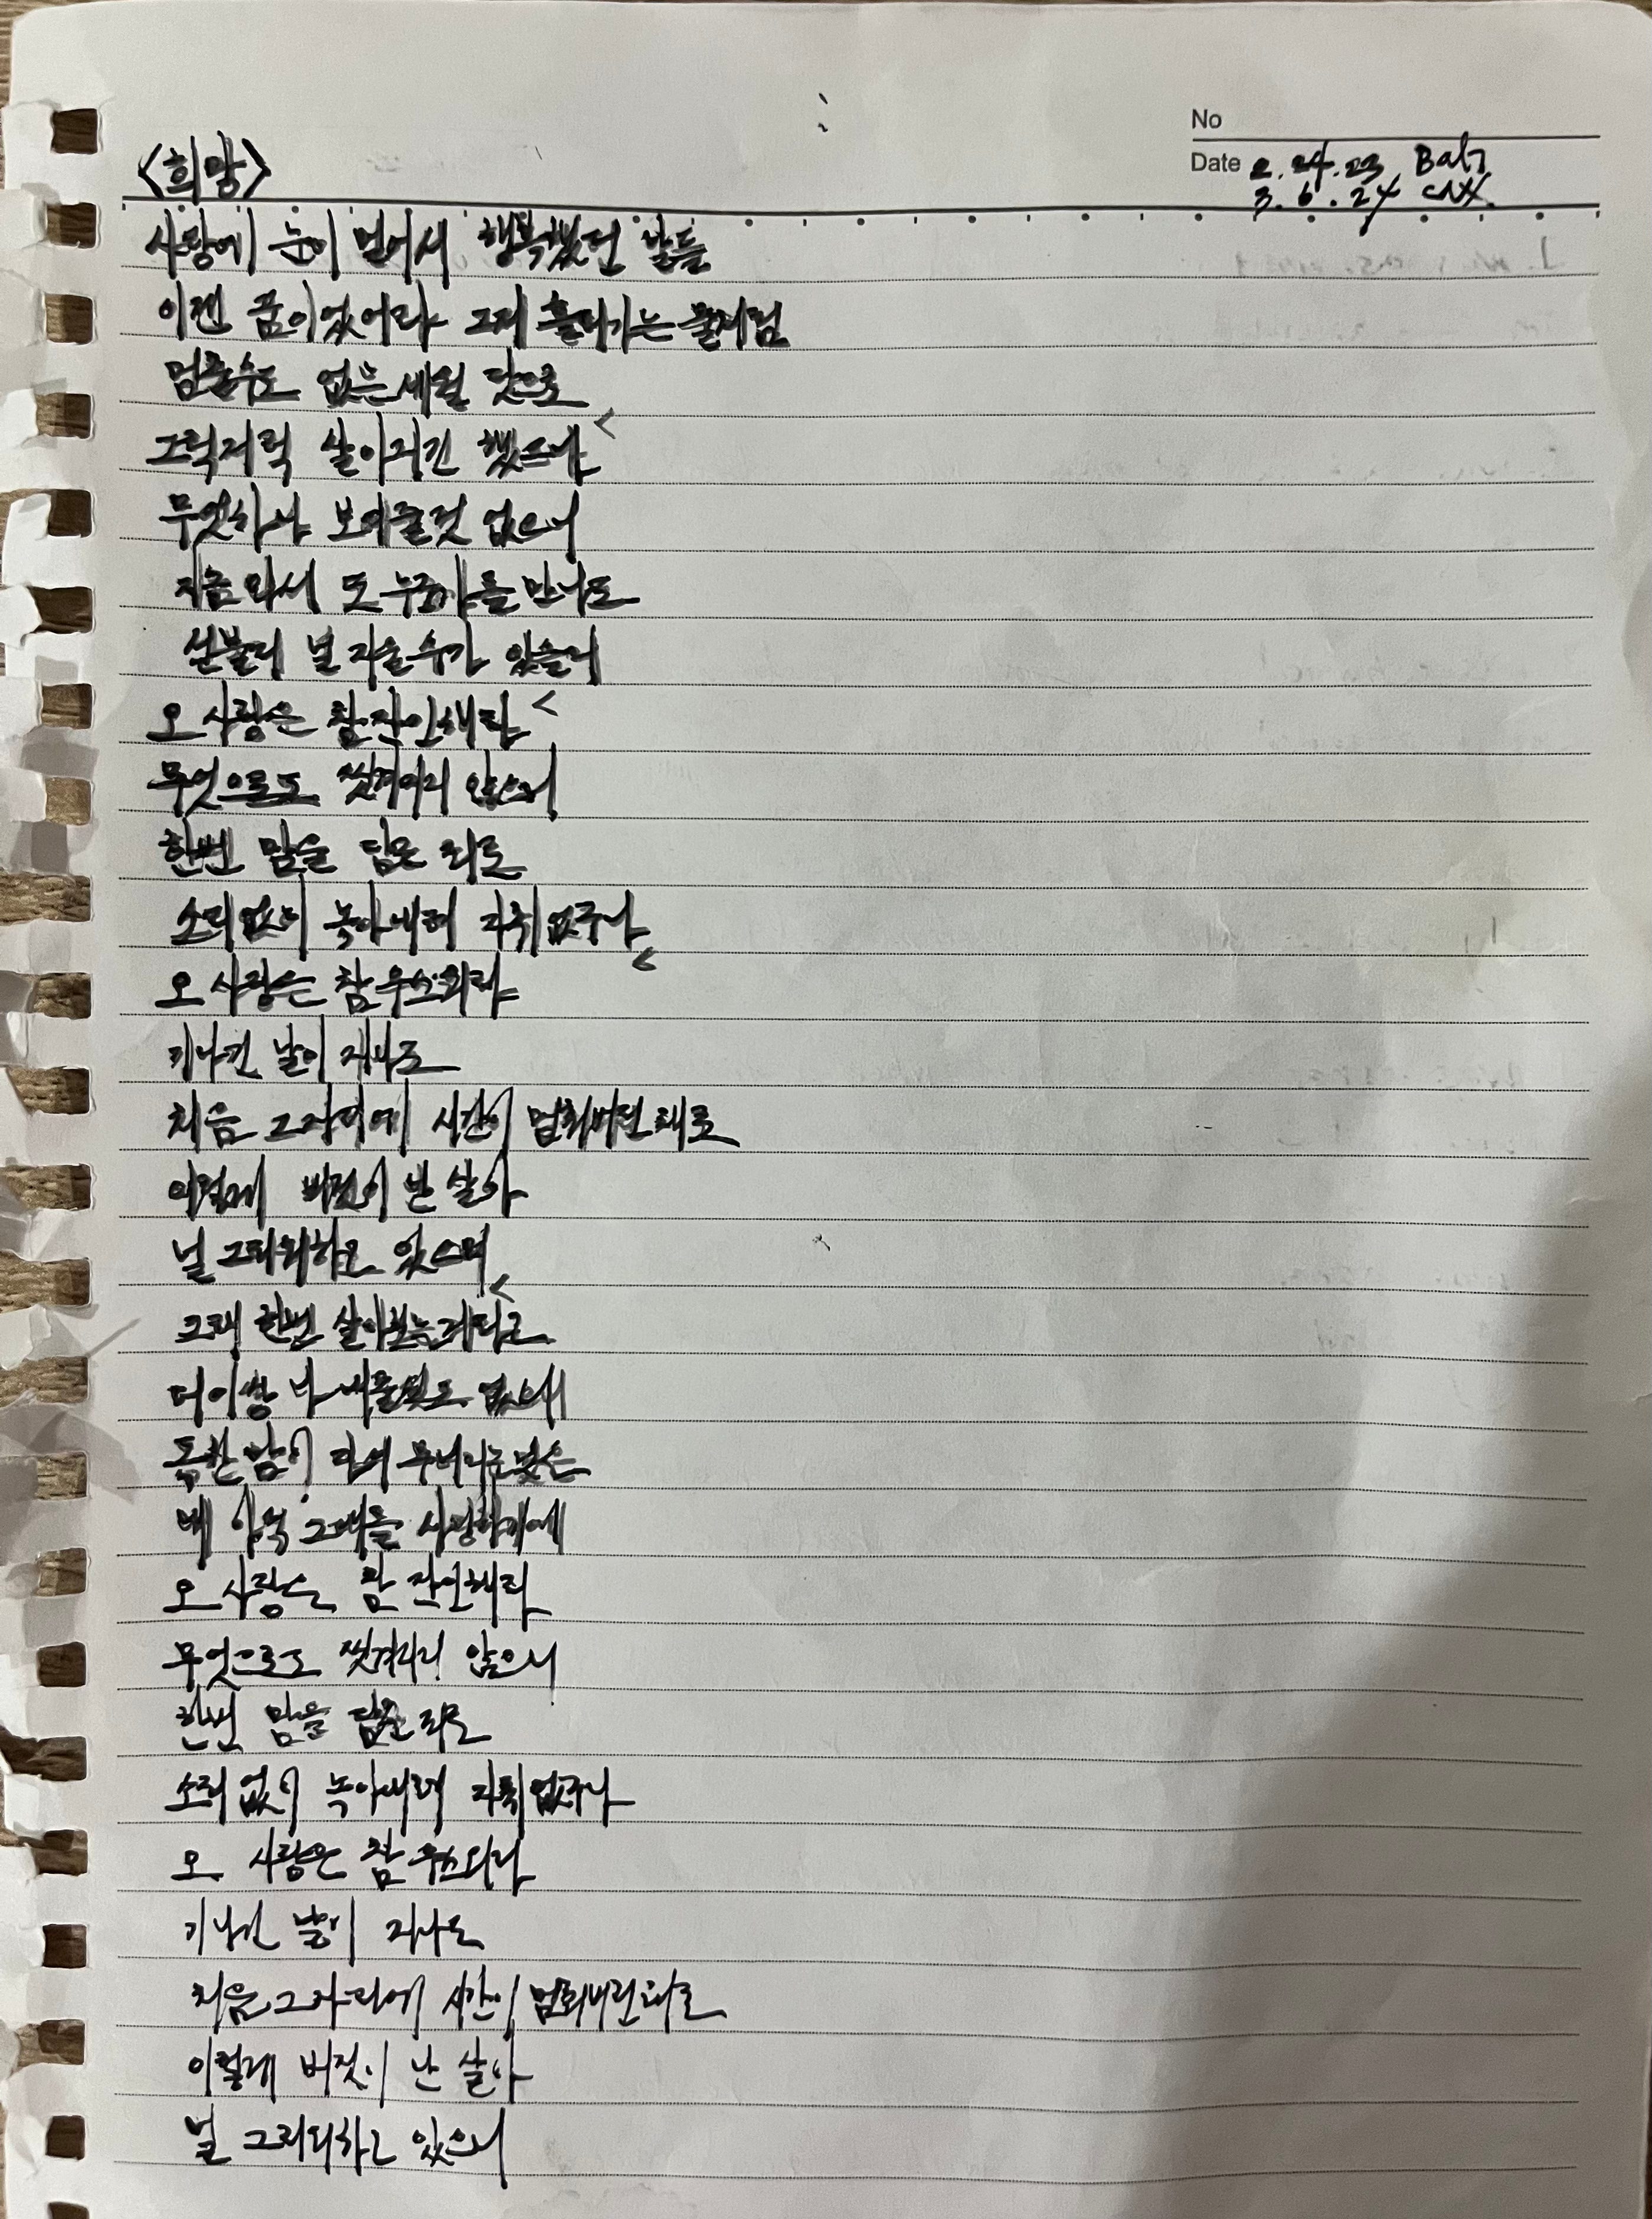 No
Date 2.24.23 Bali
3.6.24 CNX.
<희망>
사랑에 눈이 멀어서 행복했던 날들
이젠 꿈이었어라 그저 흘러가는 물처럼
멈출수도 없는 세월 탓으로
그럭저럭 살아지긴 했으나
무엇하나 보여줄것 없으니
지금 와서 또 누군가를 만나도
섣불리 널 지울수가 있을리
오 사랑은 참 잔인해라
무엇으로도 씻겨지지 않으니
한번 맘을 담은 죄로
소리없이 녹아내려 자취없구나
오 사랑은 참 우스워라
기나긴 날이 지나도
처음 그자리에 시간이 멈춰버린 채로
이렇게 버젓이 난 살아
널 그리워하고 있으며
그래 한번 살아보는거라고
더이상 나 내줄것도 없으니
독한 맘이 다시 무너지는 것은
네 그대를 사랑하기에
오 사랑은 참 잔인해라
무엇으로도 씻겨지지 않으니
한번 맘을 담은 죄로
소리없이 녹아내려 자취없구나
오 사랑은 참 우스워라
기나긴 날이 지나도
처음 그자리에 시간이 멈춰버린 채로
이렇게 버젓이 난 살아
널 그리워하고 있으니